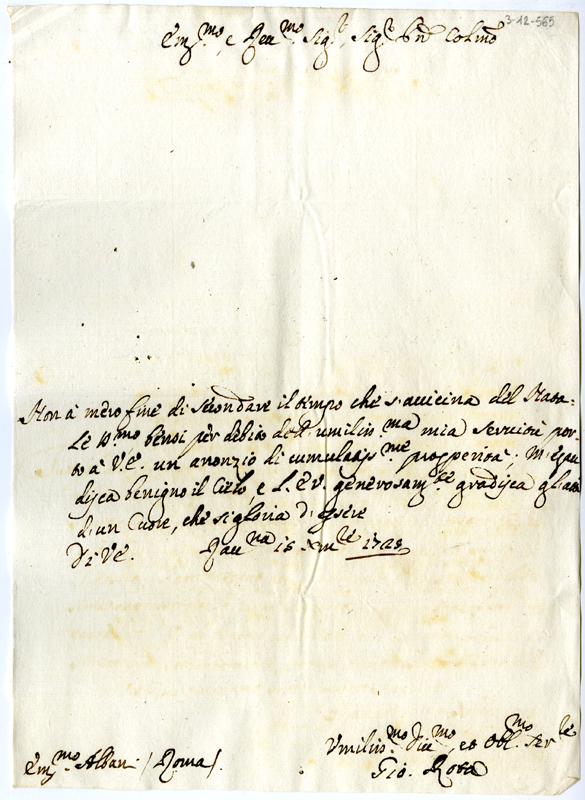 3-12-565
Em.mo, e Reu.mo Sig.r, Sig.r Pñ Colmo
Non à mero fine di secondare il tempo che s'auicina del Nata=
le S.mo bensi per debito della umiliss.ma mia seruitù por-
to à V.E. un anonzio di cumulatiss.me prosperità; M'esau
disca benigno il Cielo, e L'E.V. generosam.te gradisca gl'atti
d'un Cuore, che si gloria d'essere
Di V.E. Rau.na 16 Xm.re 1728
Umilis.mo Diu.mo, et Obl.mo Ser.re
Gio. Rota
Em.mo Albani / Roma /